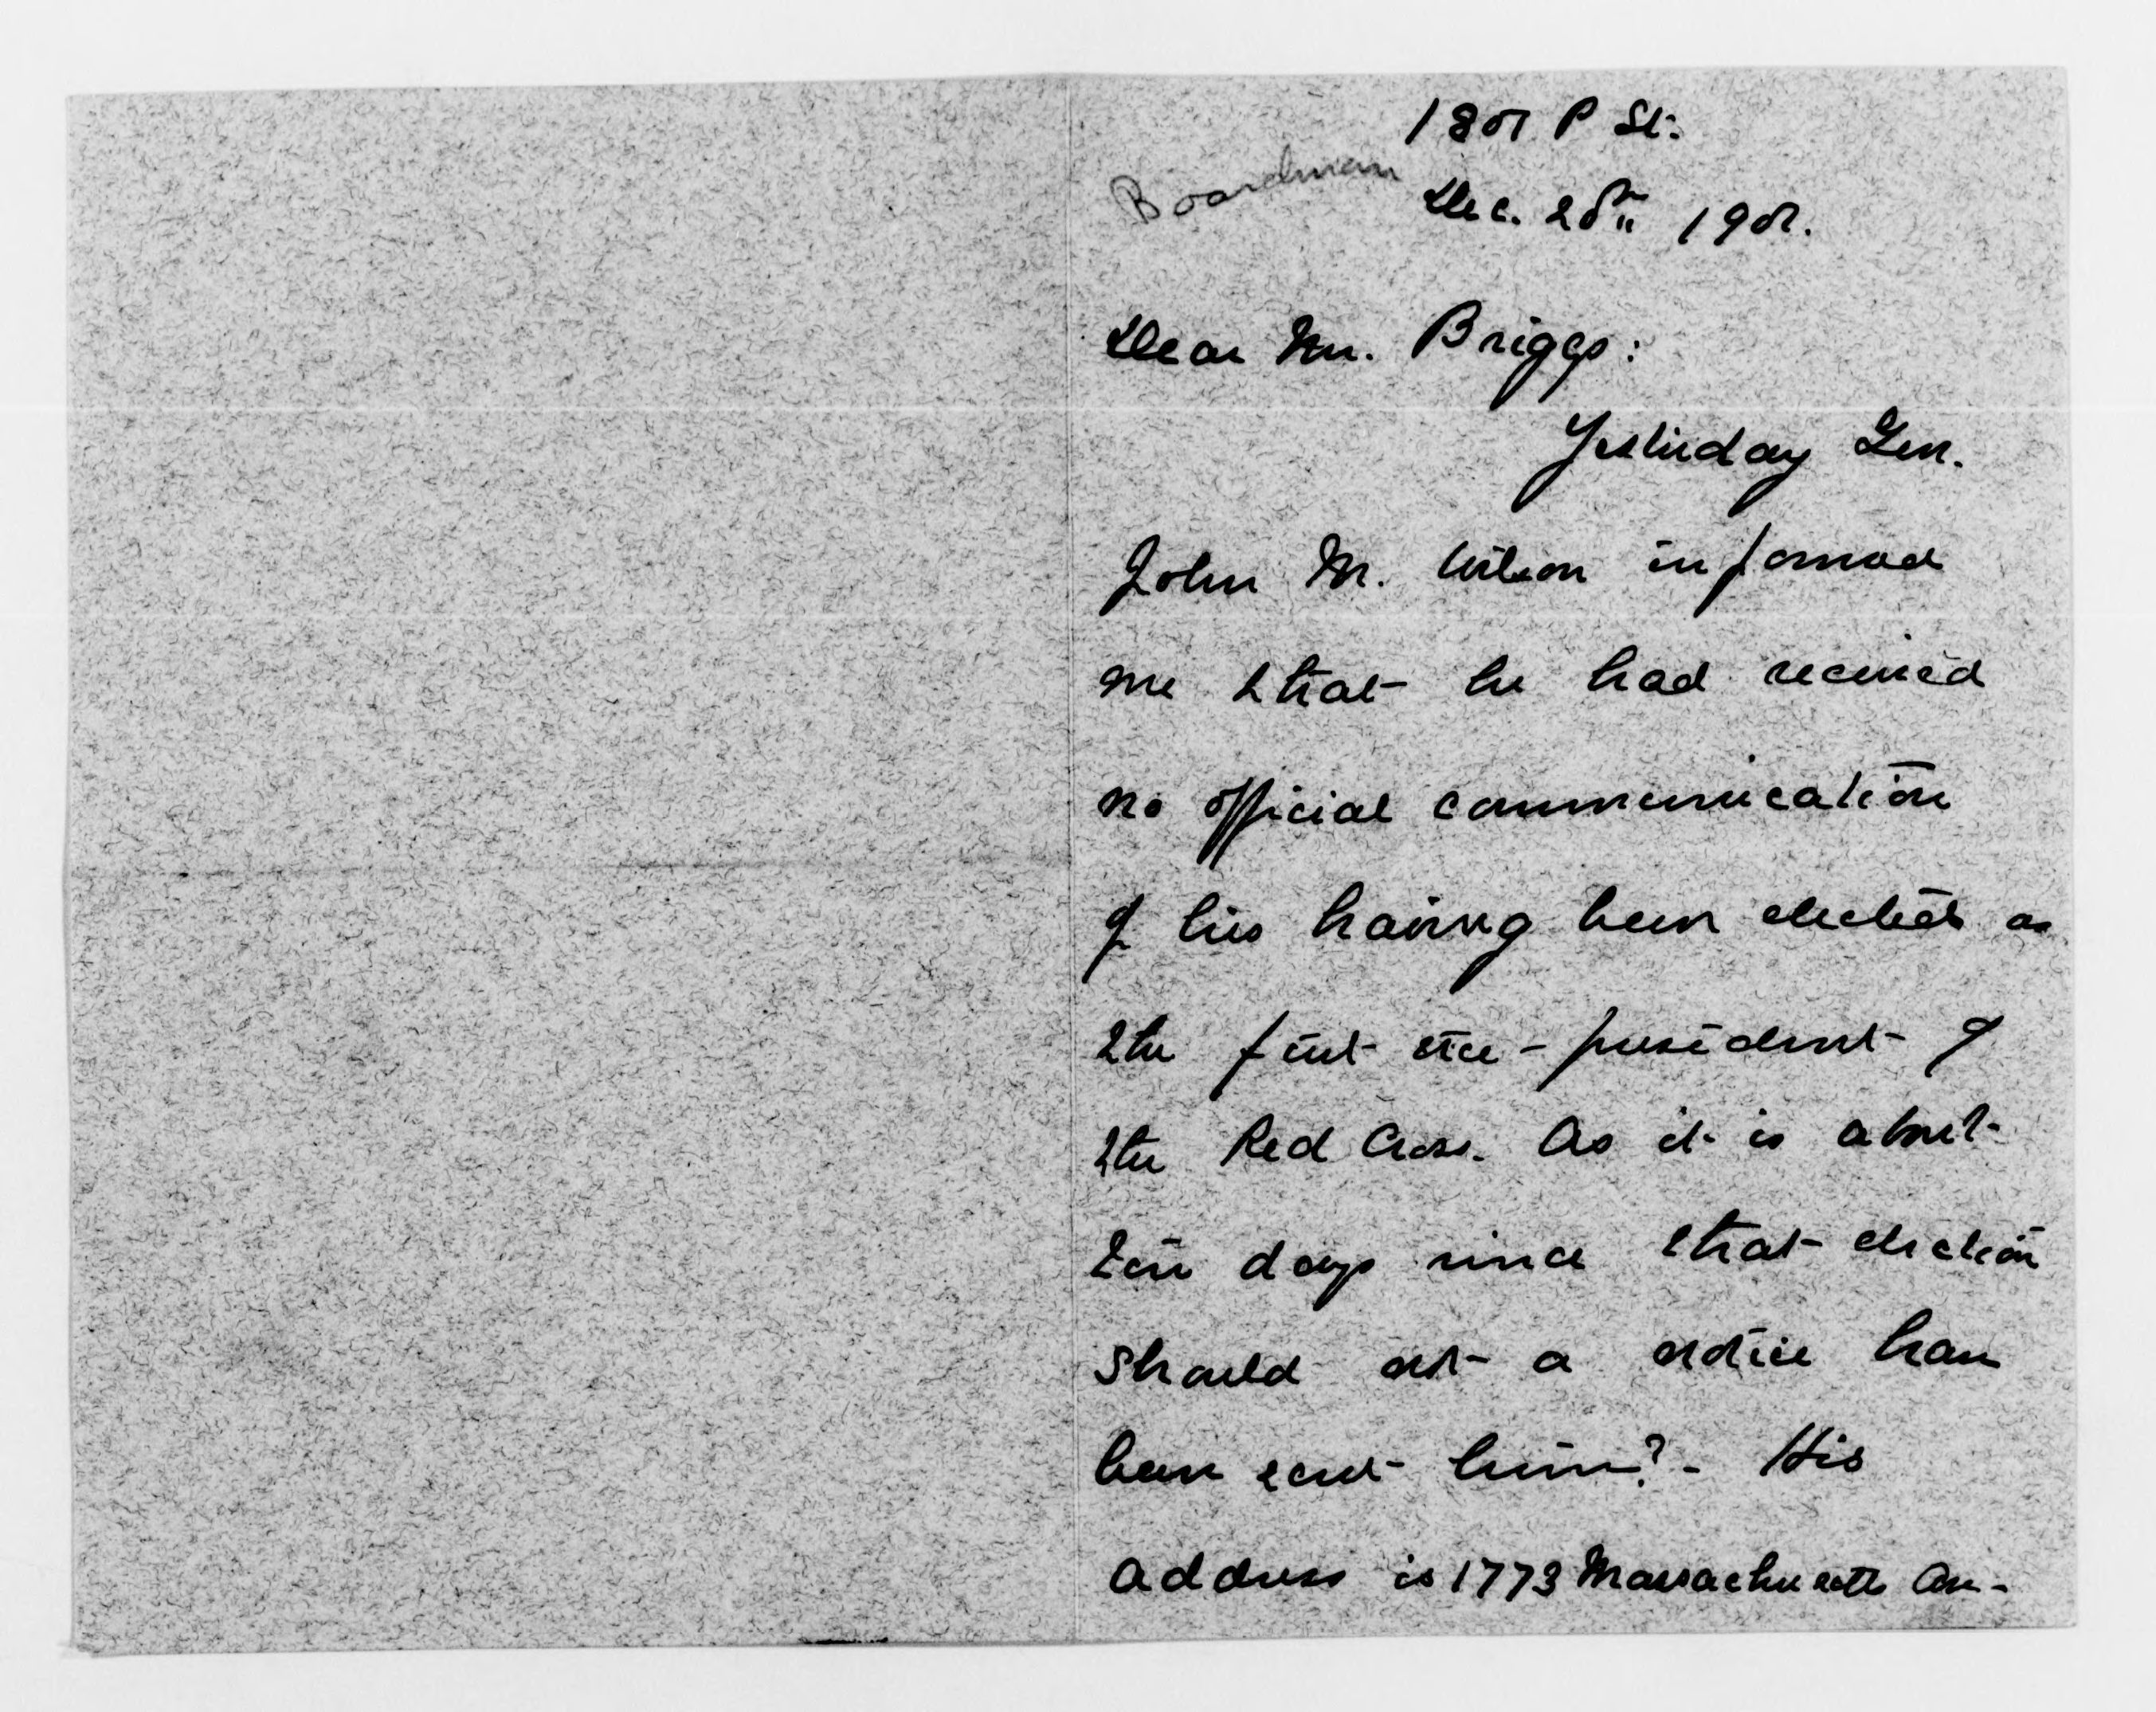 1801 P St.
Boardman
Dec. 20th 1901.
Dear Mr. Briggs:
Yesterday Gen.
John M. Wilson informed
me that he had received
no official communication
of his having been elected as
the first vice-president of
the Red Cross. As it is about
ten days since that election
should not a notice have
been sent him?- His
address is 1773 Massachusetts Ave-